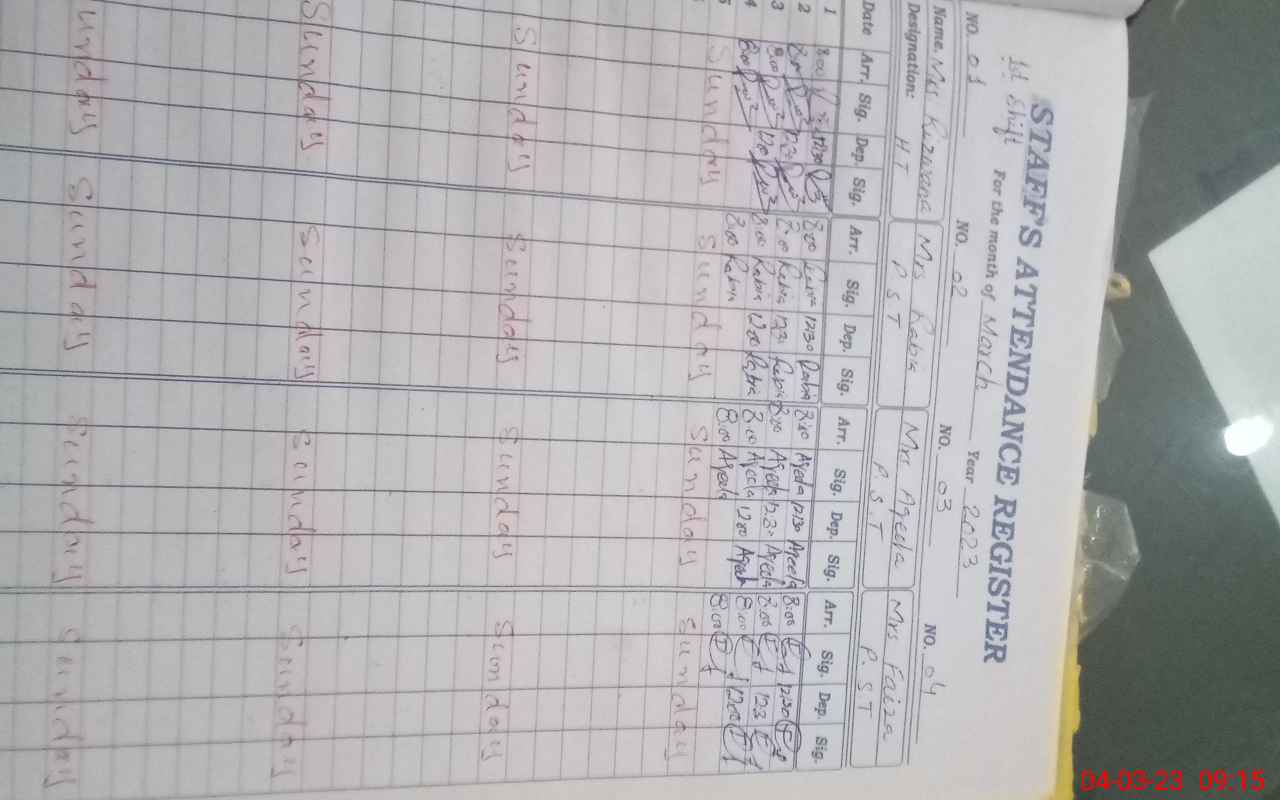 STAFF'S ATTENDANCE REGISTER
1st Shift For the month of March Year 2023
NO. 01 NO. 02 NO. 03 NO. 04
Name. Mrs Rizwana Mrs Rabia Mrs Aqeela Mrs Faiza
Designation: HT P.S.T P.S.T P.S.T
Date Arr. Sig. Dep. Sig. Arr. Sig. Dep. Sig. Arr. Sig. Dep. Sig. Arr. Sig. Dep. Sig.
1 8:00 12:30 8:00 Rabia 12:30 Rabia 8:00 Aqeela 12:30 Aqeela 8:00 12:30
2 8:00 8:00 Rabia Rabia 8:00 Aqeela 12:30 Aqeela 8:00
3 8:00 12:00 8:00 Rabia 12:00 Rabia 8:00 Aqeela 12:00 Aqeela 8:00 12:00
4 8:00 8:00 Rabia 8:00 Aqeela 8:00
Sunday Sunday Sunday Sunday
Sunday Sunday Sunday Sunday
Sunday Sunday Sunday Sunday
Sunday Sunday Sunday Sunday
04-03-23 09:15